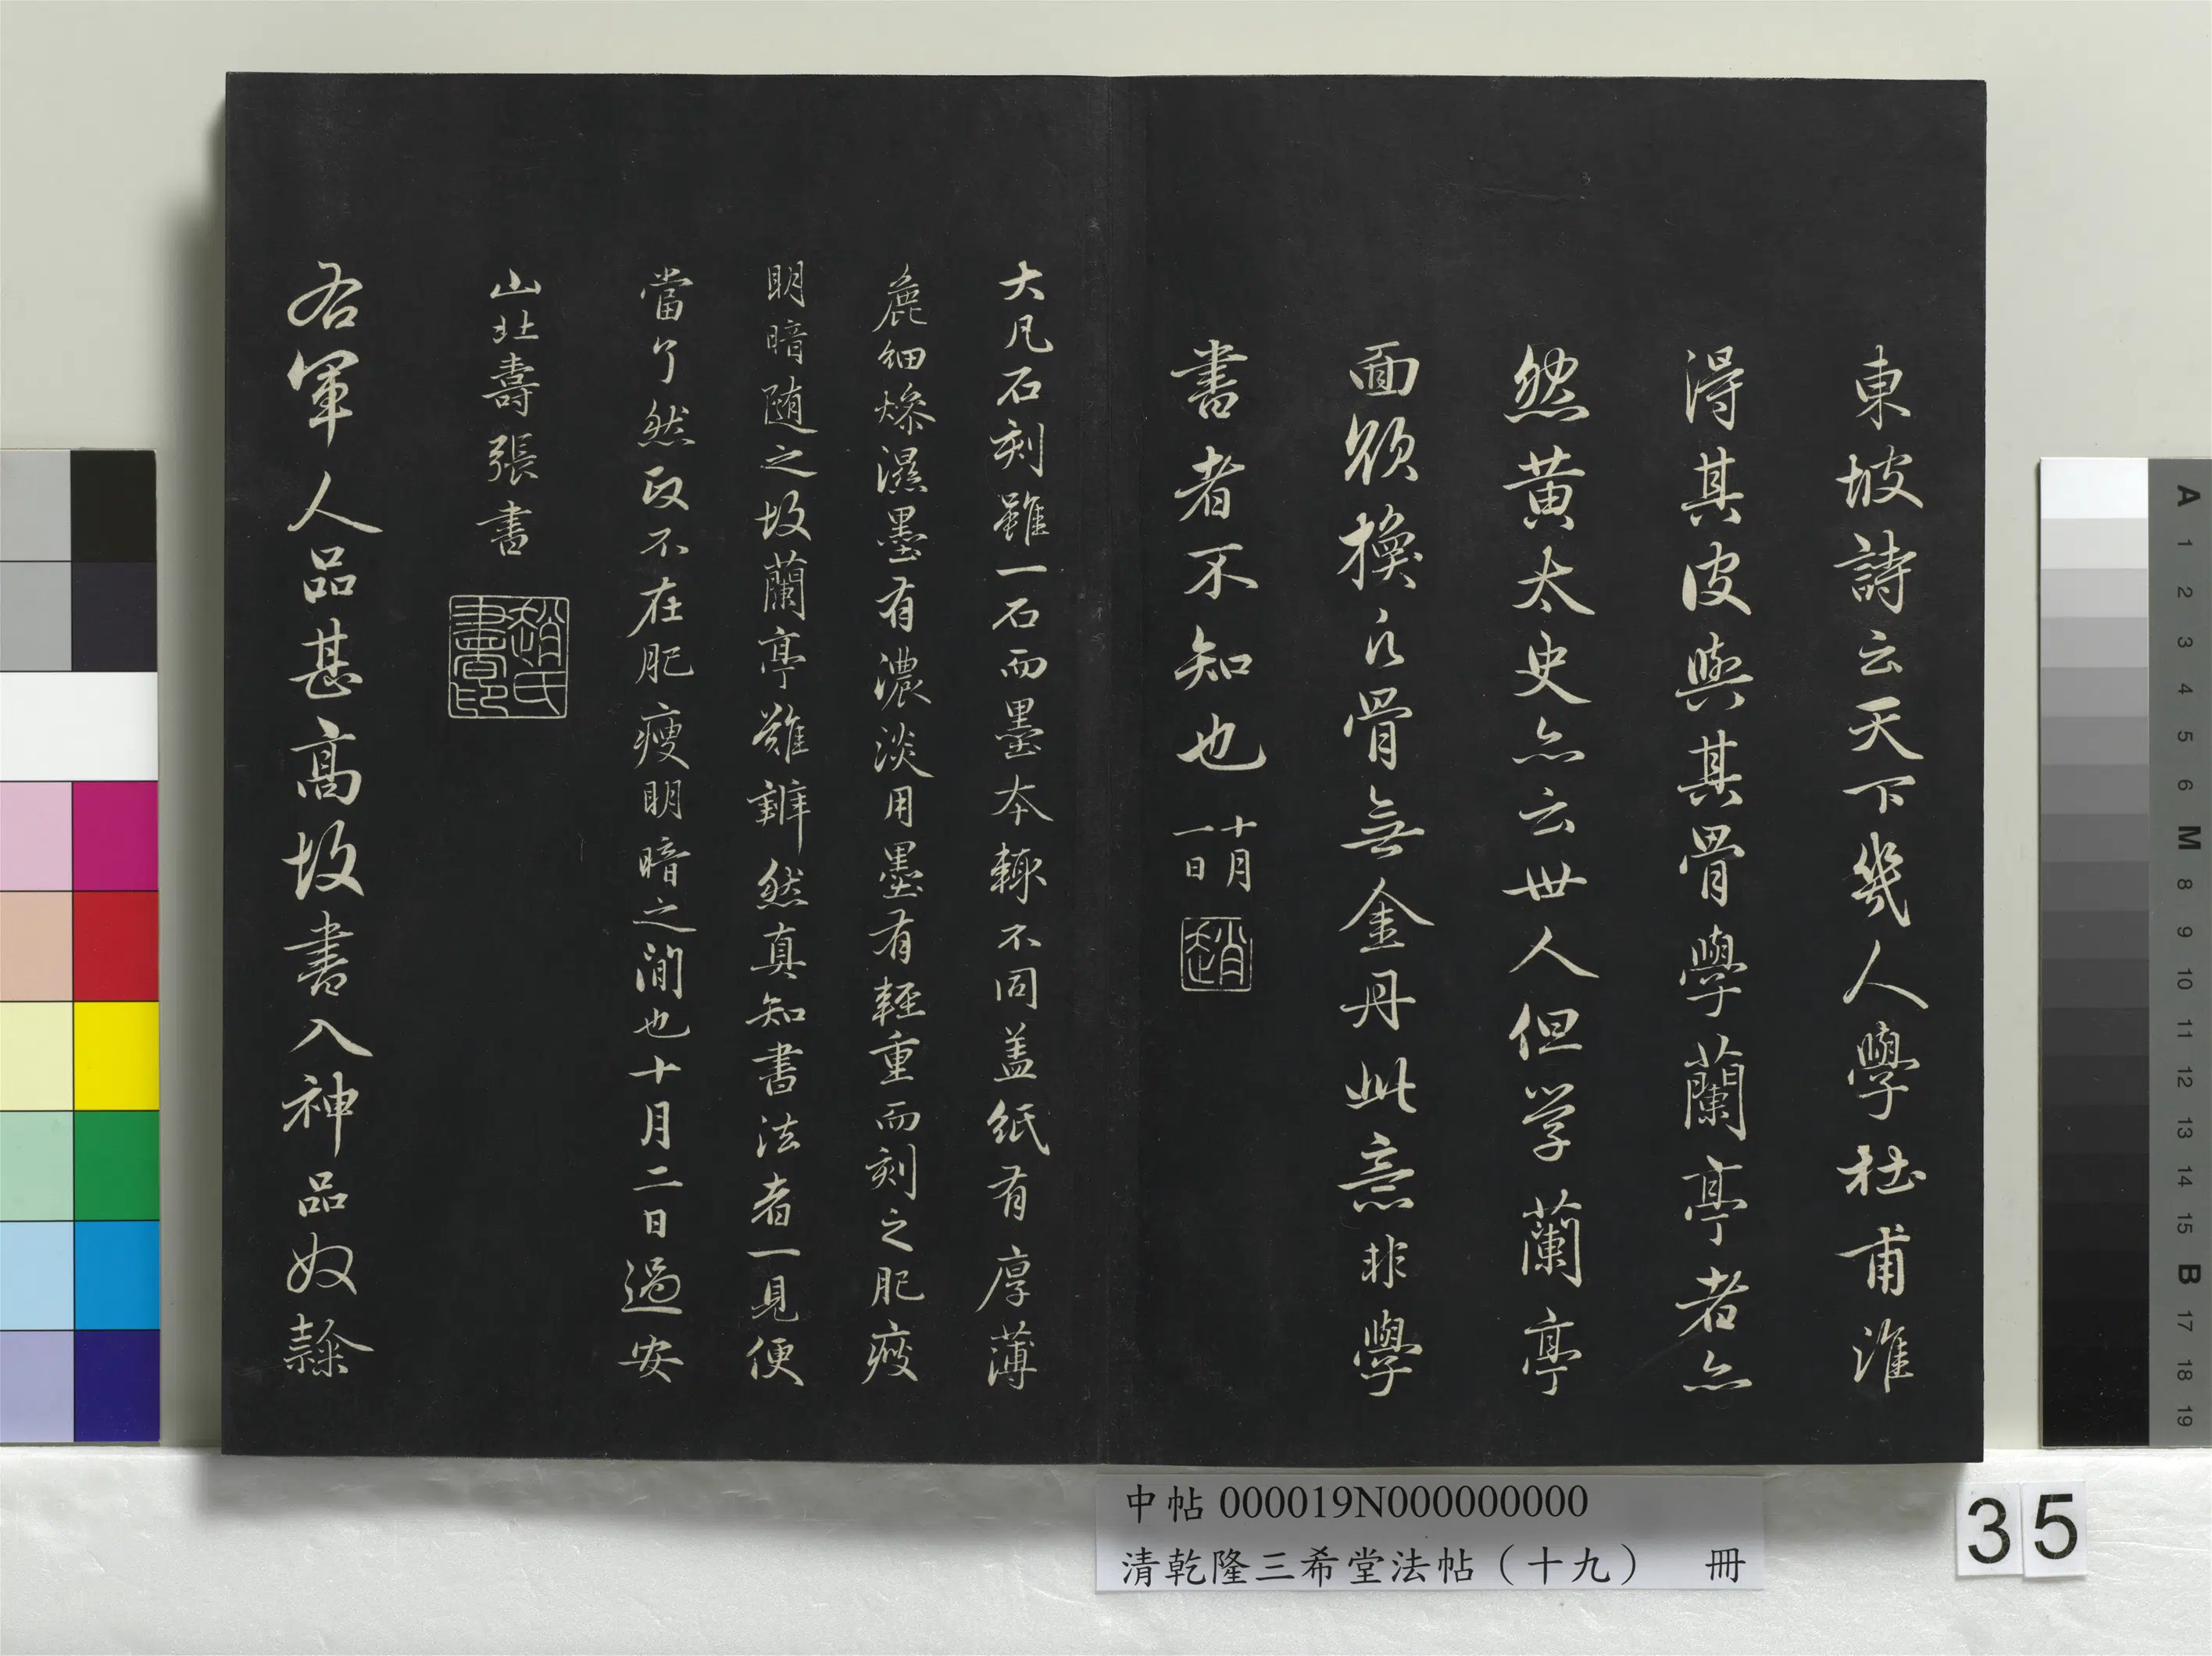 東坡詩云天下幾人學杜甫誰
得其皮與其骨學蘭亭者亦
然黃太史亦云世人但学蘭亭
面欲換凡骨無金丹此意非學
書者不知也
十月
一日
趙
大凡石刻雖一石而墨本輙不同盖紙有厚薄
麁細燥濕墨有濃淡用墨有輕重而刻之肥瘦
明暗随之故蘭亭難辨然真知書法者一見便
當了然政不在肥瘦明暗之間也十月二日過安
山北壽張書
趙氏書印
右軍人品甚高故書入神品奴隸
中帖 000019N000000000
清乾隆三希堂法帖（十九） 冊
35
A
1
2
3
4
5
6
M
8
9
10
11
12
13
14
15
B
17
18
19